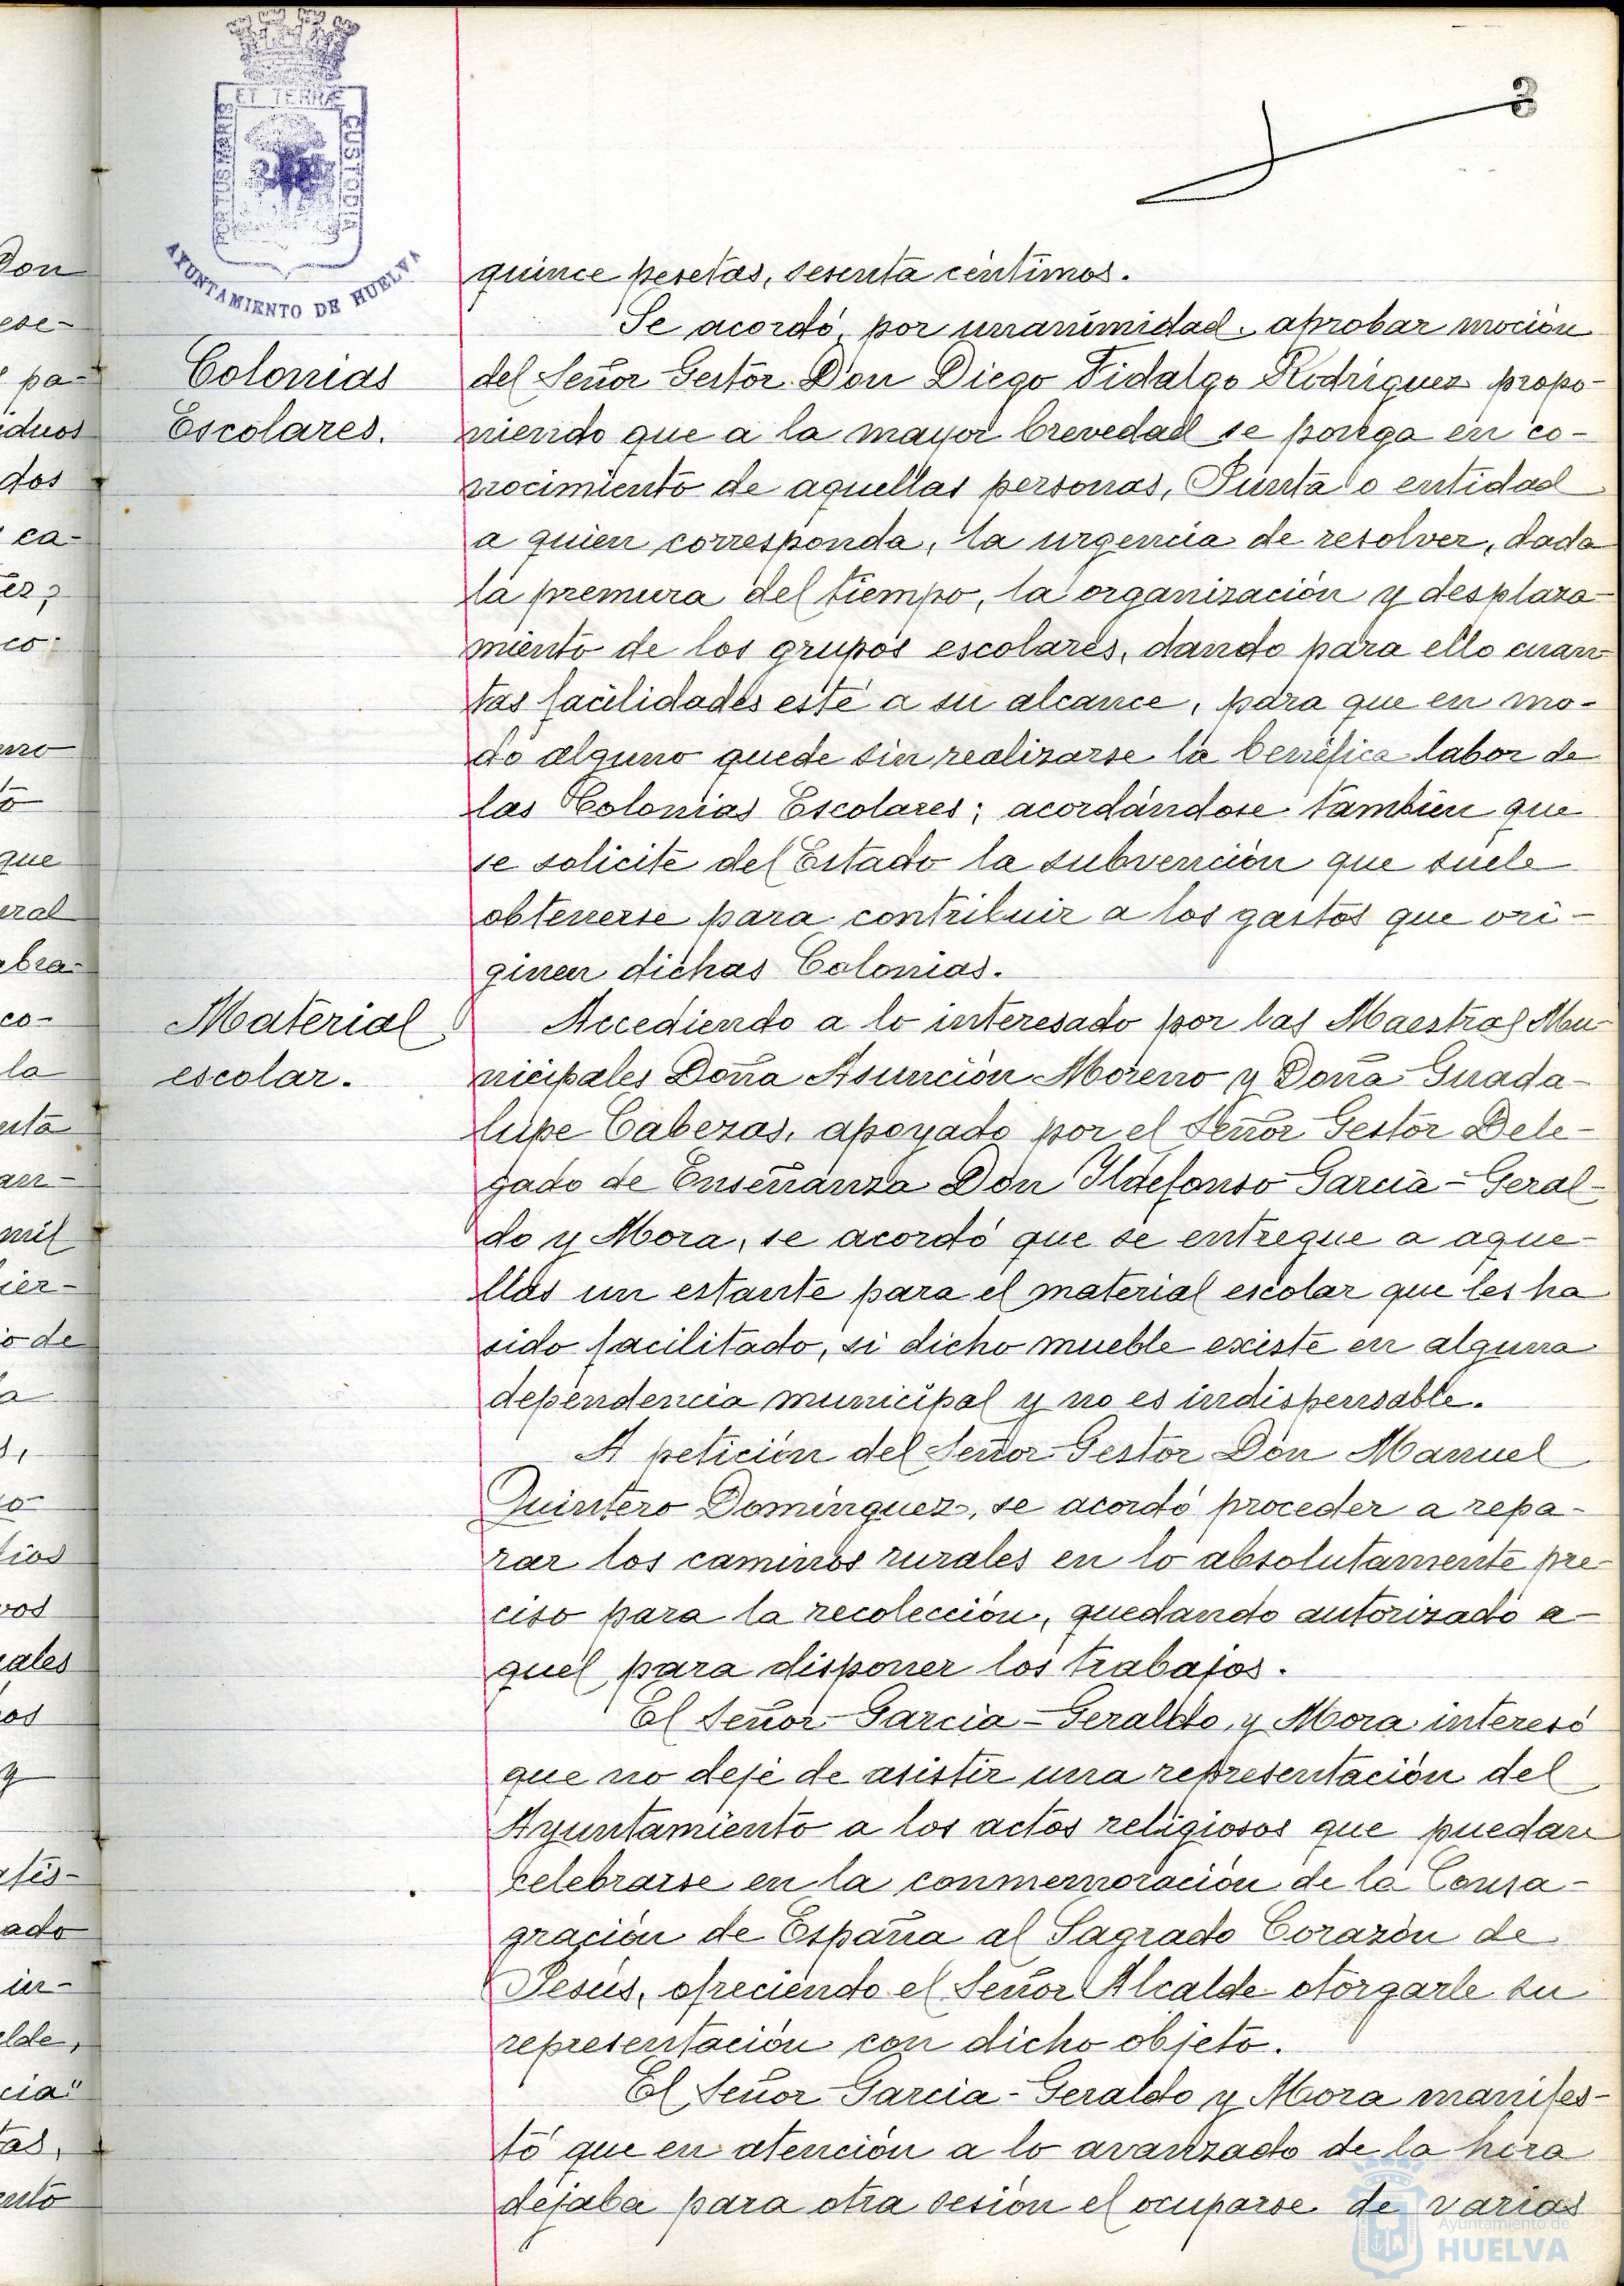 3
PORTUS MARIS ET TERRÆ CUSTODIA
AYUNTAMIENTO DE HUELVA
quince pesetas, sesenta céntimos.
Se acordó, por unanimidad, aprobar moción
Colonias
del Señor Gestor Don Diego Fidalgo Rodríguez propo-
Escolares.
niendo que a la mayor brevedad se ponga en co-
nocimiento de aquellas personas, Junta o entidad
a quien corresponda, la urgencia de resolver, dada
la premura del tiempo, la organización y desplaza-
miento de los grupos escolares, dando para ello cuan-
tas facilidades esté a su alcance, para que en mo-
do alguno quede sin realizarse la benéfica labor de
las Colonias Escolares; acordándose también que
se solicite del Estado la subvención que suele
obtenerse para contribuir a los gastos que ori-
ginen dichas Colonias.
Material
escolar.
Accediendo a lo interesado por las Maestras Mu-
nicipales Doña Asunción Moreno y Doña Guada-
lupe Cabezas, apoyado por el Señor Gestor Dele-
gado de Enseñanza Don Ildefonso García-Geral-
do y Mora, se acordó que se entregue a aque-
llas un estante para el material escolar que les ha
sido facilitado, si dicho mueble existe en alguna
dependencia municipal y no es indispensable.
A petición del Señor Gestor Don Manuel
Quintero Domínguez, se acordó proceder a repa-
rar los caminos rurales en lo absolutamente pre-
ciso para la recolección, quedando autorizado a-
quel para disponer los trabajos.
El Señor García-Geraldo y Mora interesó
que no deje de asistir una representación del
Ayuntamiento a los actos religiosos que puedan
celebrarse en la conmemoración de la Consa-
gración de España al Sagrado Corazón de
Jesús, ofreciendo el Señor Alcalde otorgarle su
representación con dicho objeto.
El Señor García-Geraldo y Mora manifes-
tó que en atención a lo avanzado de la hora
dejaba para otra sesión el ocuparse de varias
Ayuntamiento de
HUELVA